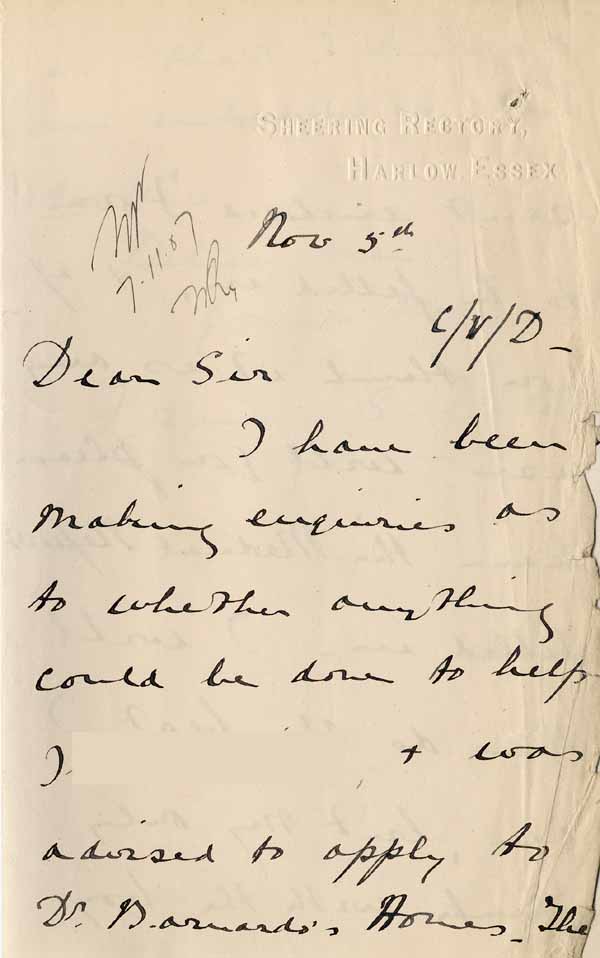 SHEERING RECTORY,
HARLOW, ESSEX
Nov 5th
7.11.07
C/V/D -
Dear Sir
I have been
making enquiries as
to whether anything
could be done to help
J
+ was
advised to apply to
Dr. Barnardo's Homes. The